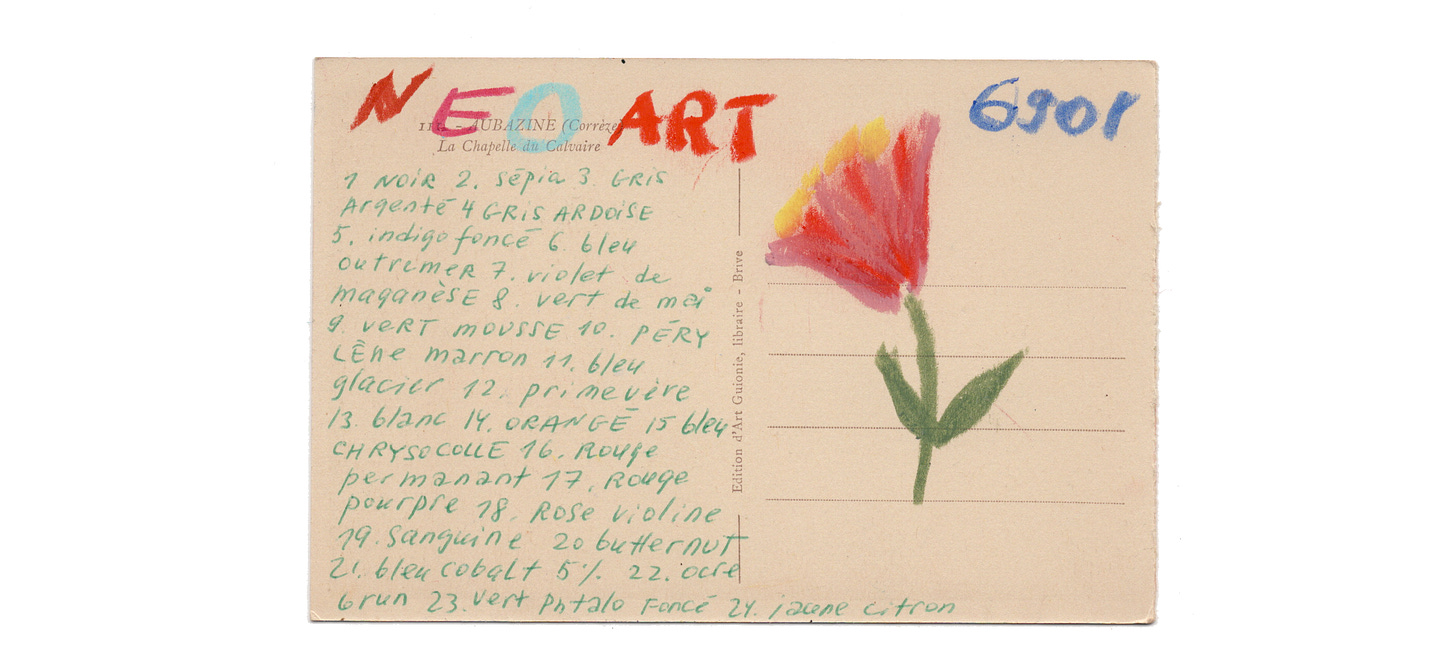 NEO ART
6901
AUBAZINE (Corrèze)
La Chapelle du Calvaire
1 NOIR 2. Sépia 3 GRIS
Argenté 4 GRIS ARDOISE
5. indigo foncé 6. bleu
outremer 7. violet de
maganèse 8. vert de mai
9. VERT MOUSSE 10. PÉRY
LÈne marron 11. bleu
glacier 12. primevère
13. blanc 14. ORANGÉ 15 bleu
CHRYSOCOLLE 16. Rouge
permanant 17. Rouge
pourpre 18. Rose violine
19. Sanguine 20 butternut
21. bleu cobalt 5% 22. ocre
brun 23. Vert Phtalo Foncé 24. jaune citron
Edition d'Art Guionie, libraire - Brive